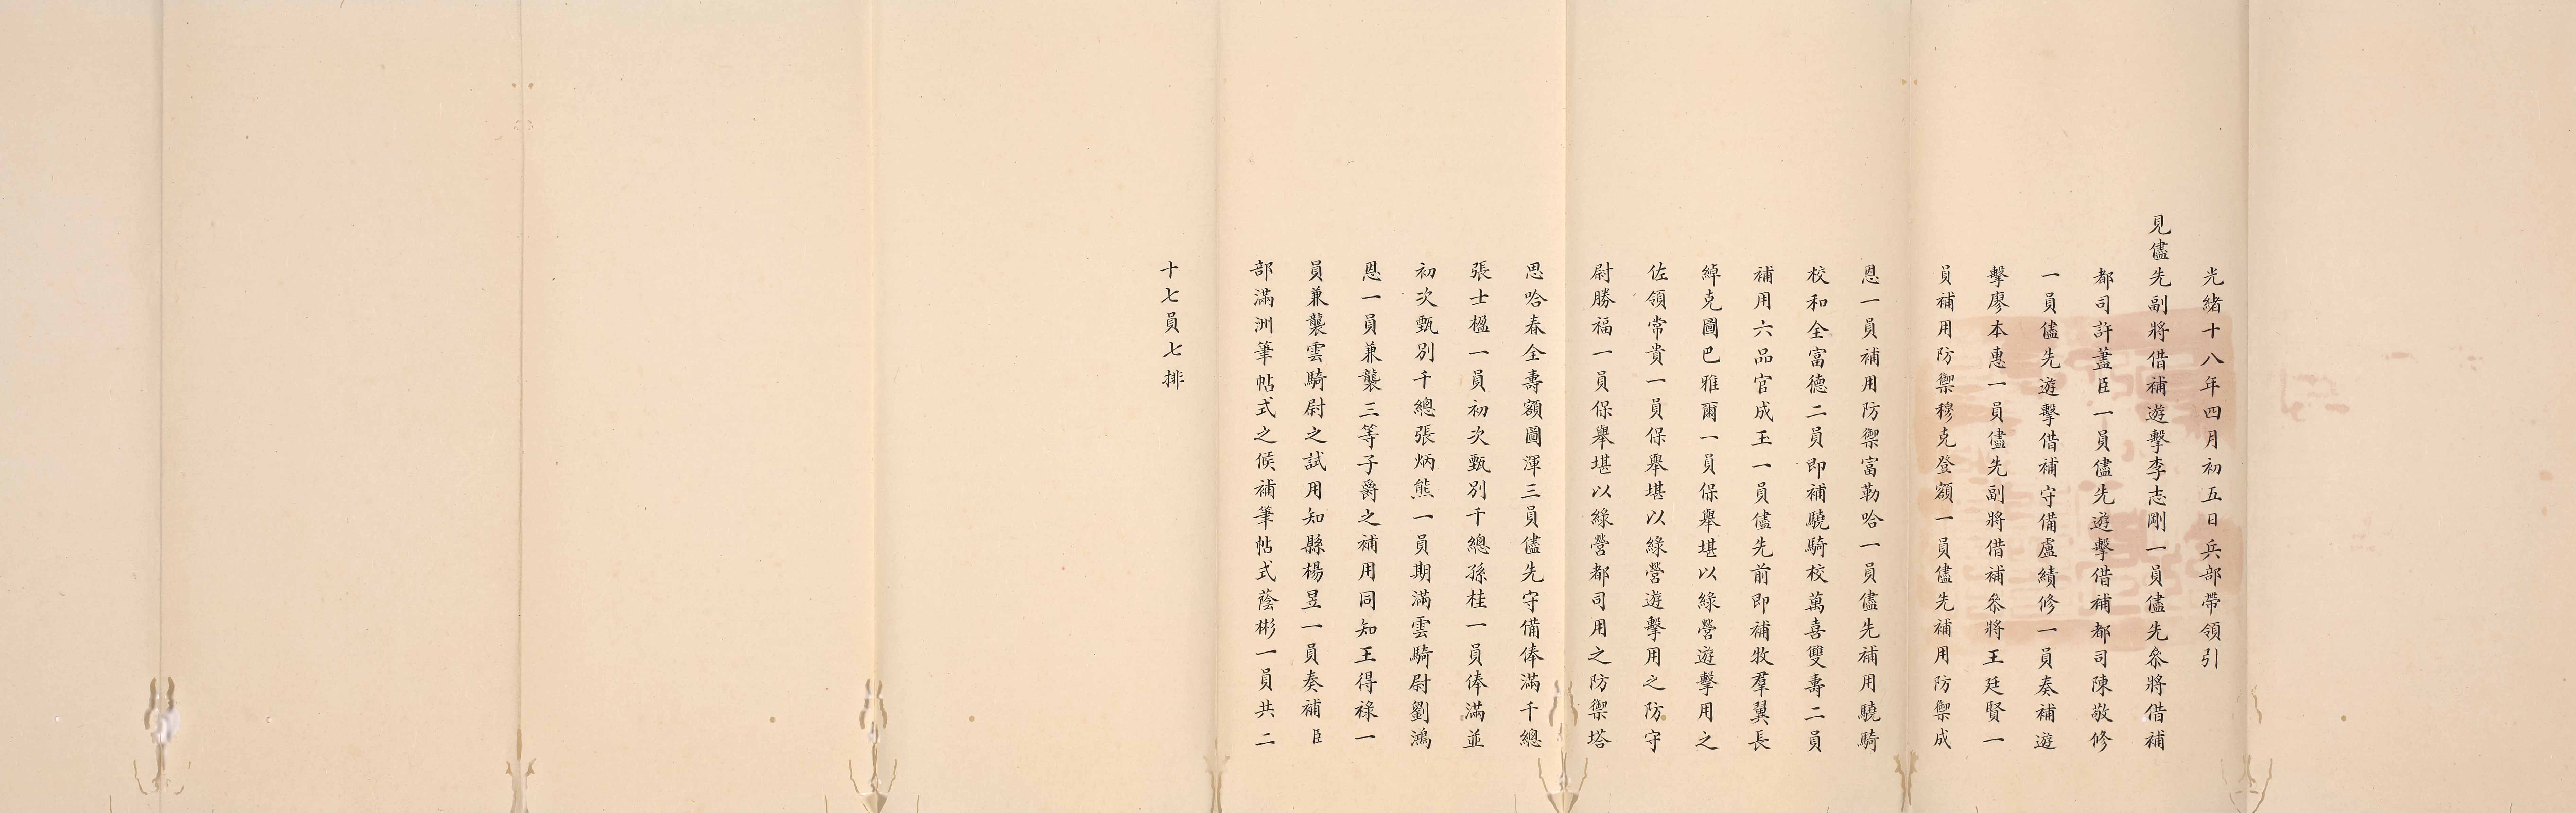 光緒十八年四月初五日兵部帶領引
見儘先副將借補遊擊李志剛一員儘先叅將借補
都司許藎臣一員儘先遊擊借補都司陳敬修
一員儘先遊擊借補守備盧績修一員奏補遊
擊廖本惠一員儘先副將借補叅將王廷賢一
員補用防禦穆克登額一員儘先補用防禦成
恩一員補用防禦富勒哈一員儘先補用驍騎
校和全富德二員即補驍騎校萬喜雙壽二員
補用六品官成玉一員儘先前即補牧羣翼長
綽克圖巴雅爾一員保舉堪以綠營遊擊用之
佐領常貴一員保舉堪以綠營遊擊用之防守
尉勝福一員保舉堪以綠營都司用之防禦塔
思哈春全壽額圖渾三員儘先守備俸滿千總
張士楹一員初次甄別千總孫桂一員俸滿並
初次甄別千總張炳熊一員期滿雲騎尉劉鴻
恩一員兼襲三等子爵之補用同知王得祿一
員兼襲雲騎尉之試用知縣楊昱一員奏補臣
部滿洲筆帖式之候補筆帖式蔭彬一員共二
十七員七排